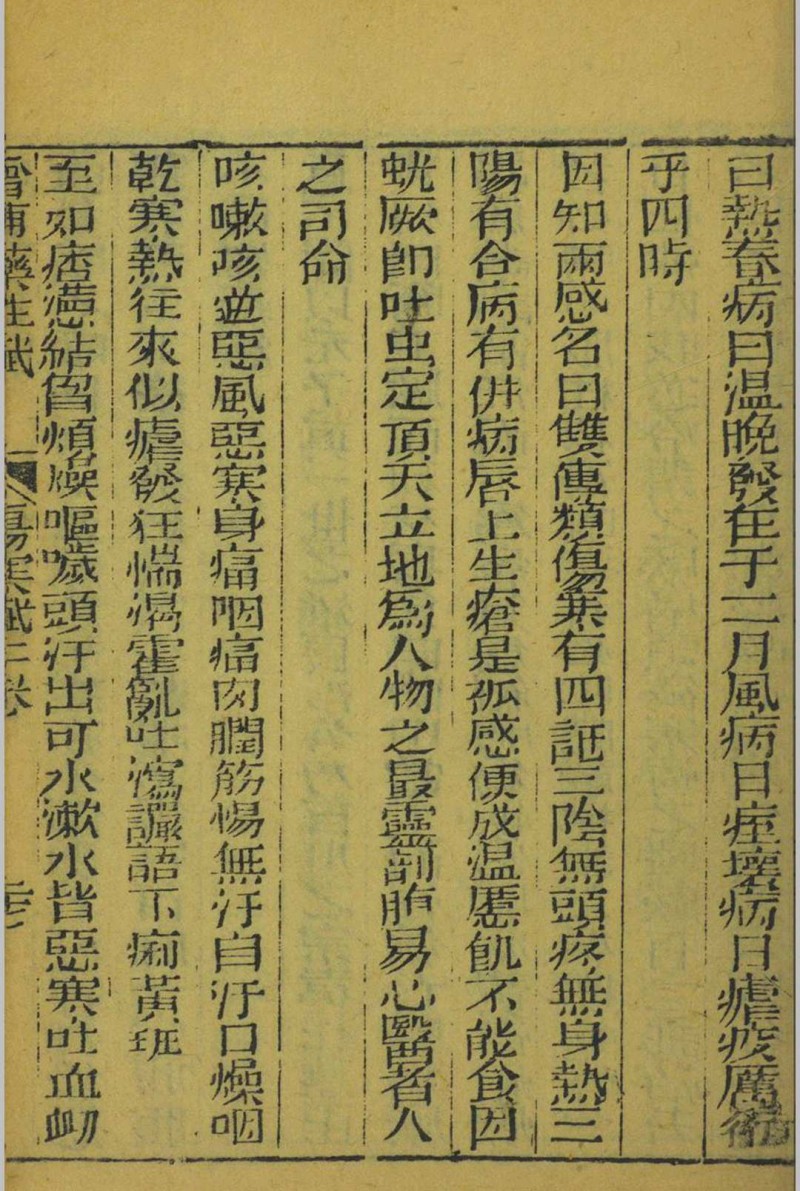 曰熱春病曰温晩發在于二月風病曰痓壞病曰瘧疫厲衛
乎四時
因知兩感名曰雙傳類傷寒有四証三陰無頭疼無身熱三
陽有合病有併病唇上生瘡是狐感便成温𢙣飢不能食因
蚘厥即吐虫定頂天立地爲人物之最靈剖胙易心醫者人
之司命
咳嗽咳逆惡風惡寒身痛咽痛肉瞤筋惕無汗自汗口燥咽
乾寒熱徃來似瘧發狂惴渴霍亂吐瀉讝語下痢黄班
至如痞懣結畱煩燥嘔噦頭汗出可水漱水皆惡寒吐血衂
傷寒賦二卷